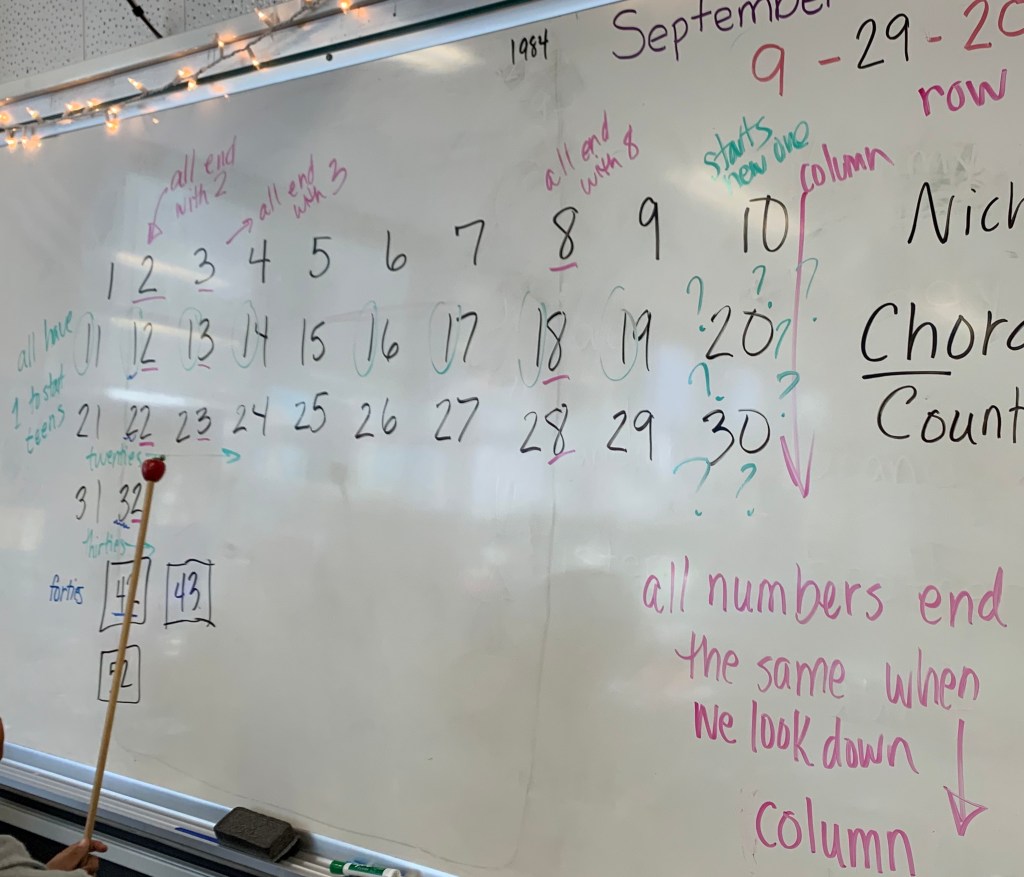 1984
September
9 - 29 - 20
row
all end
with 2
all end
with 3
all end
with 8
starts
new one
column
1 2 3 4 5 6 7 8 9 10
Nich
all have
1 to start
teens
11 12 13 14 15 16 17 18 19 20
? ? ? ?
Chor
Count
21 22 23 24 25 26 27 28 29 30
? ? ? ?
twenties
31 32
thirties
forties 42 43
52
all numbers end
the same when
we look down
column